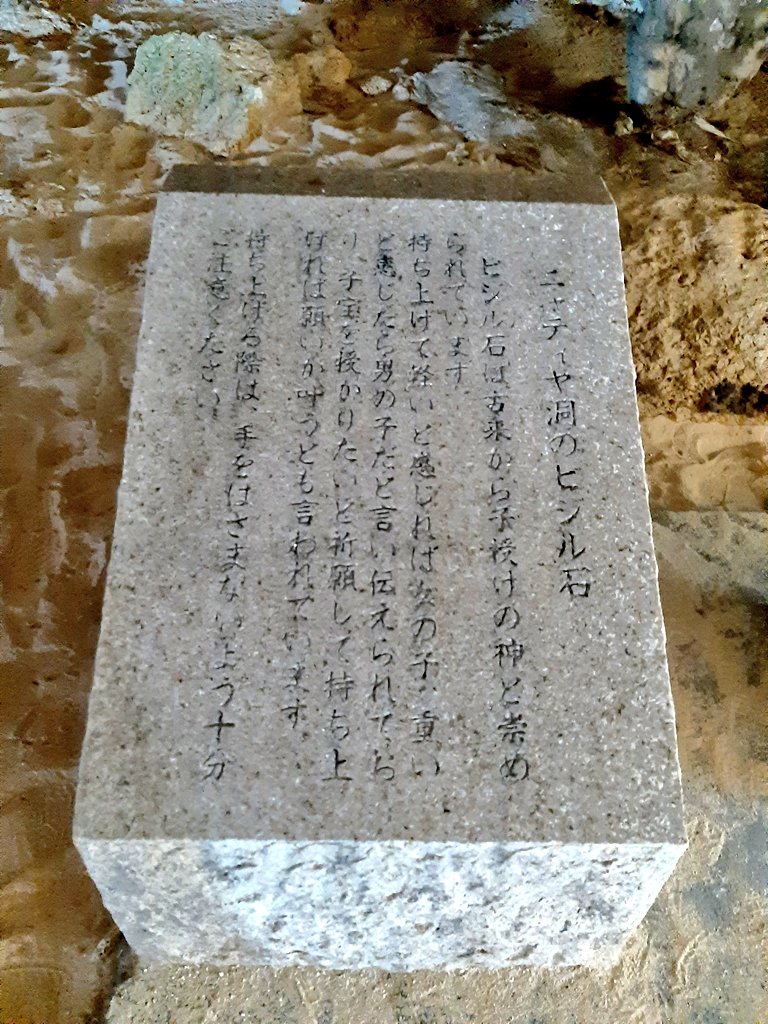 ニャティヤ洞のビジル石
ビジル石は古来から子授けの神と崇め
られています
持ち上げて軽いと感じれば女の子、重い
と感じたら男の子だと言い伝えられてお
り、子宝を授かりたいと祈願して持ち上
げれば願いが叶うとも言われています
持ち上げる際は、手をはさまないよう十分
ご注意ください